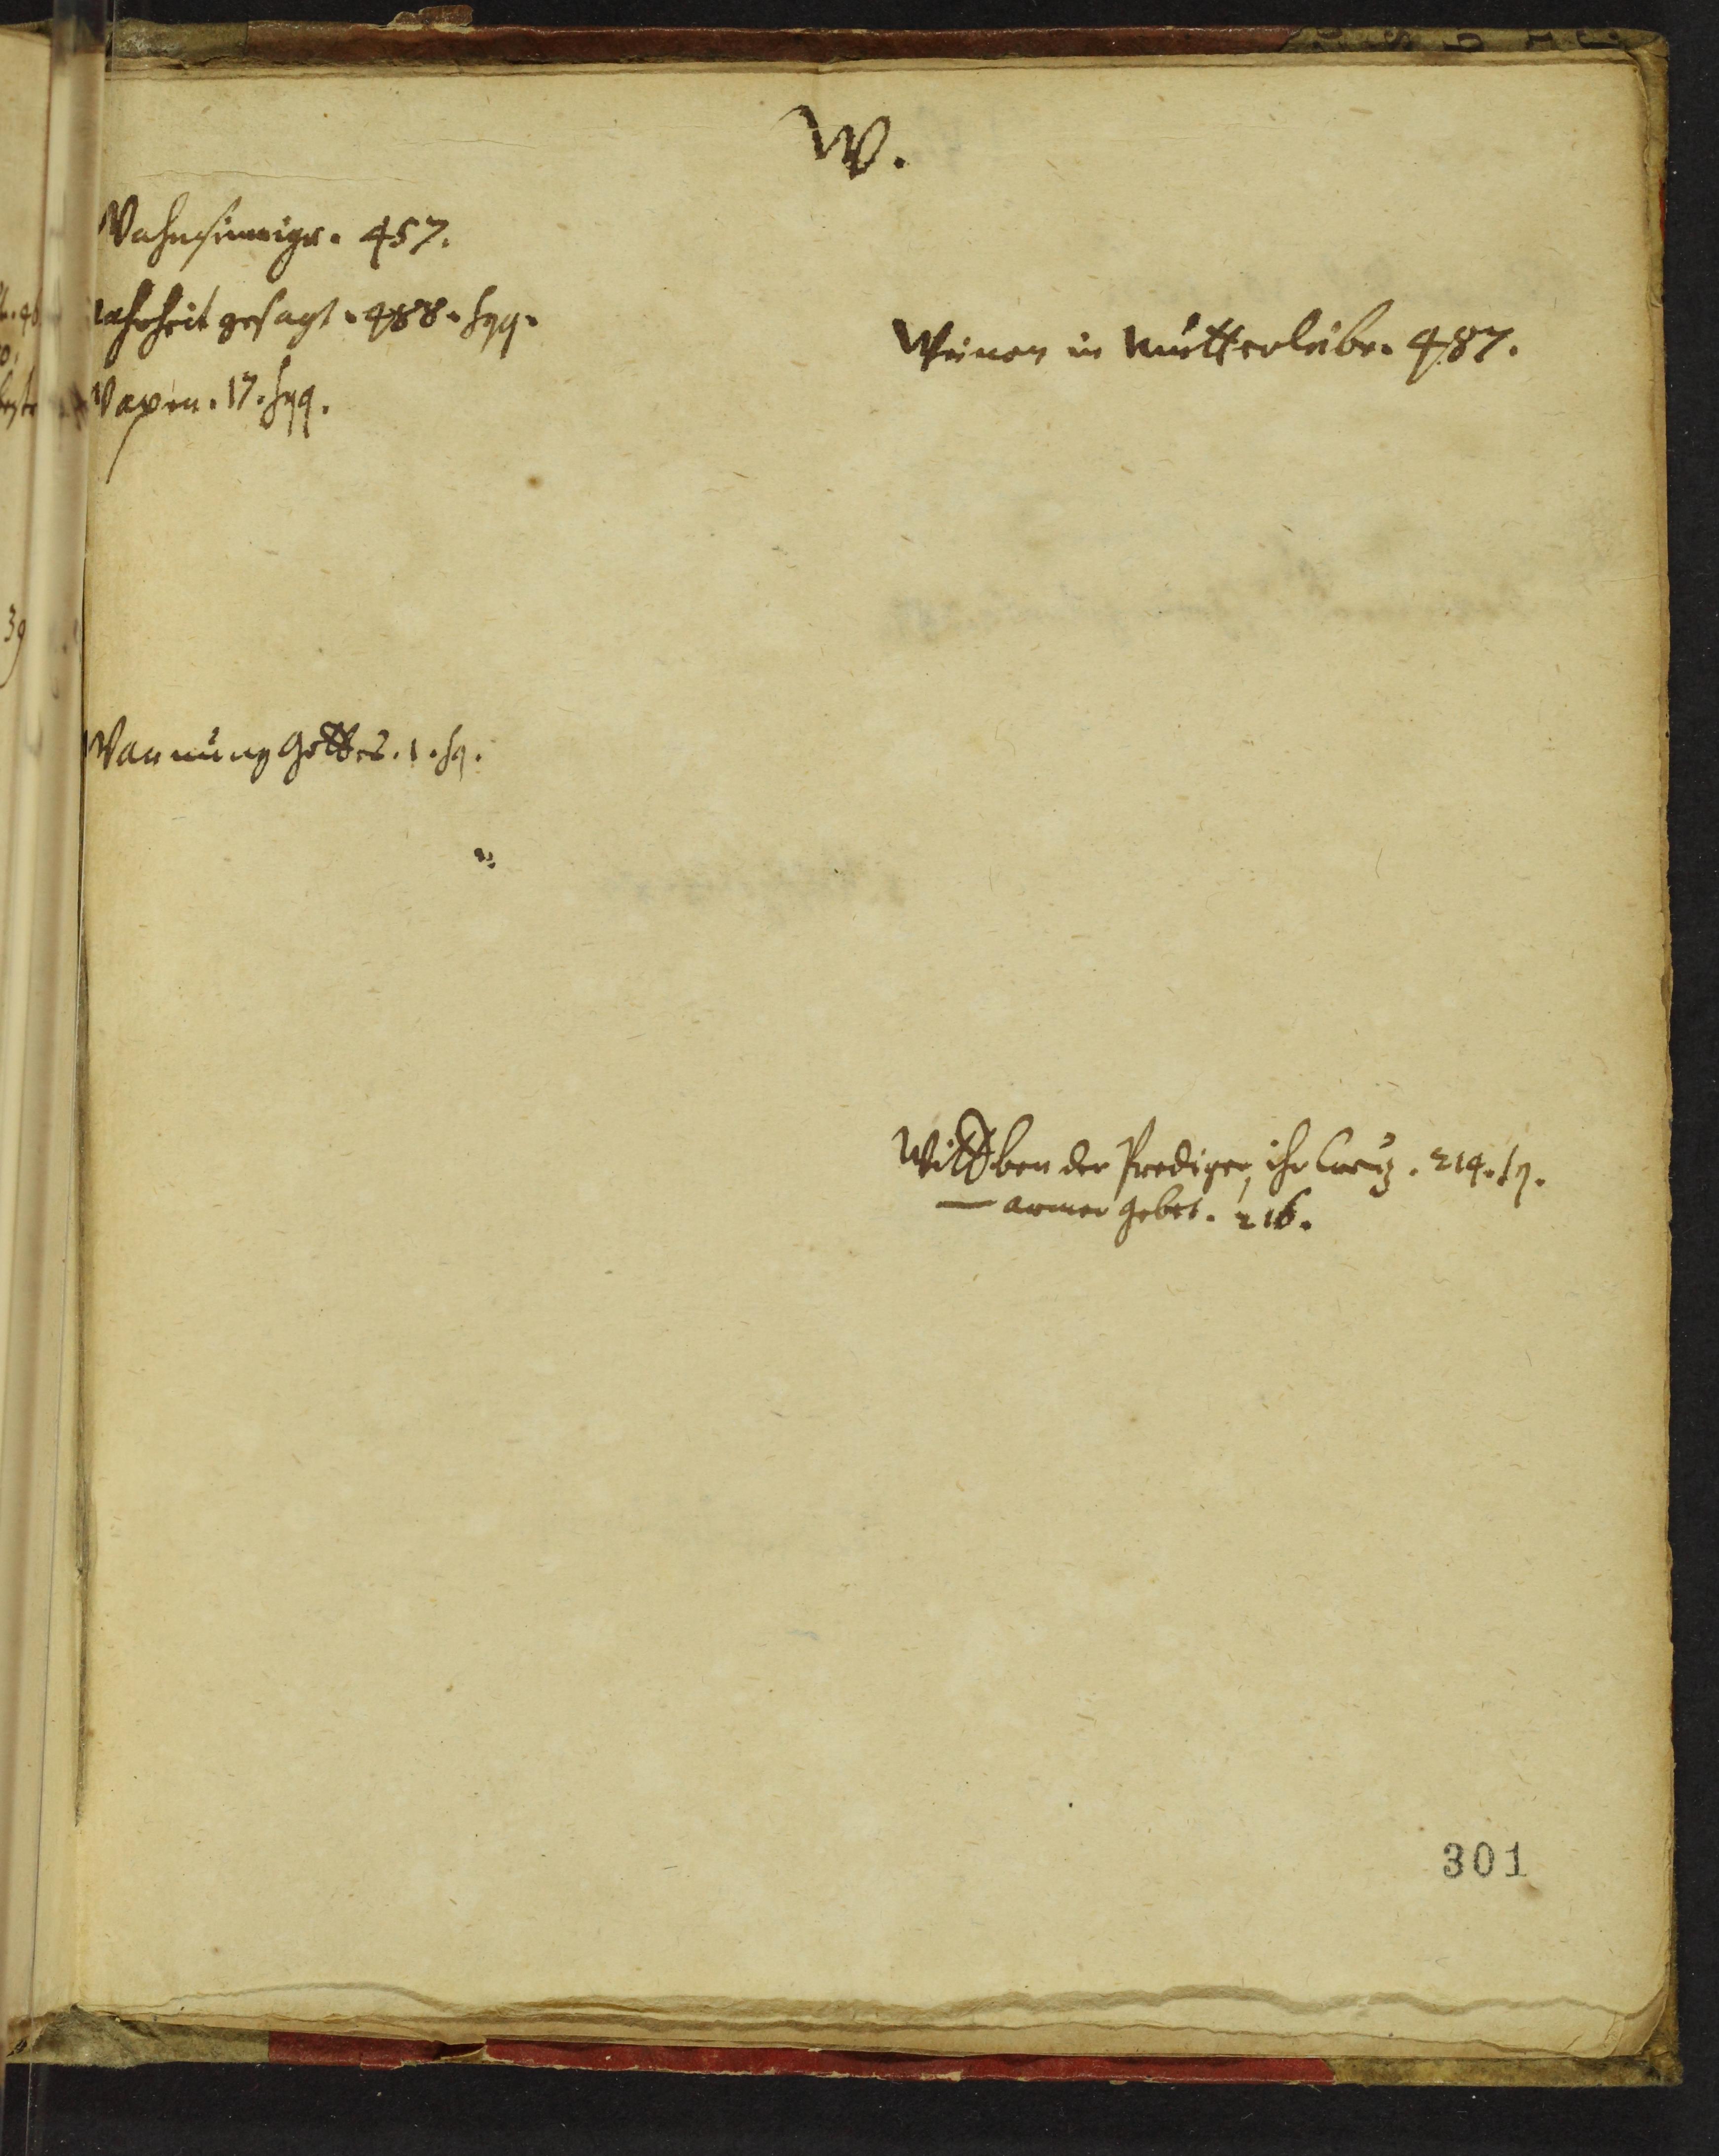 W.
Wahnsinnige. 457.
Wahrheit gesagt. 488. sqq.
Wapen. 17. sqq.
Warnung Gottes. 1. sq.
Weinen in Mutterleibe. 487.
Wittben der Prediger, ihr Creutz. 214. sq.
— armer Gebet. 216.
301